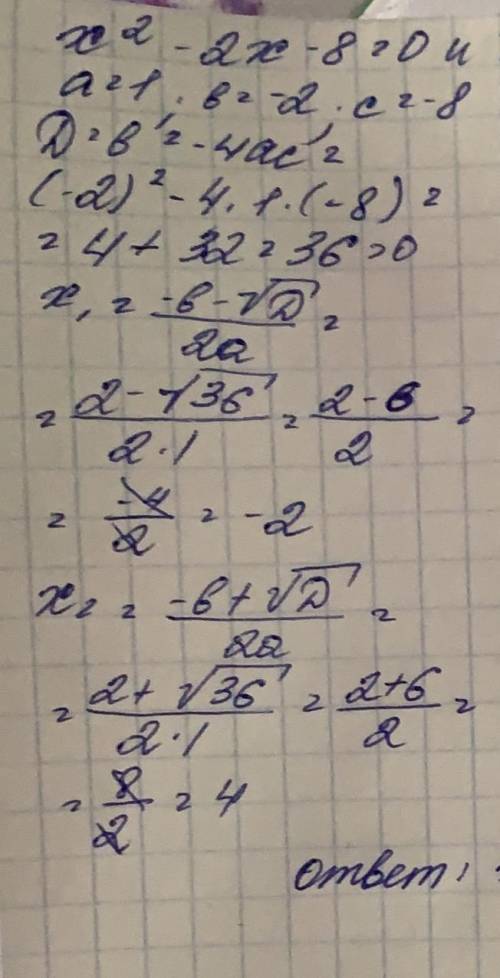 x² - 2x - 8 = 0 и
a = 1, в = -2, c = -8
D = в² - 4ac =
(-2)² - 4 · 1 · (-8) =
= 4 + 32 = 36 > 0
x₁ = (-в - √D) / 2a =
= (2 - √36) / (2 · 1) = (2 - 6) / 2 =
= -4 / 2 = -2
x₂ = (-в + √D) / 2a =
= (2 + √36) / (2 · 1) = (2 + 6) / 2 =
= 8 / 2 = 4
ответ: